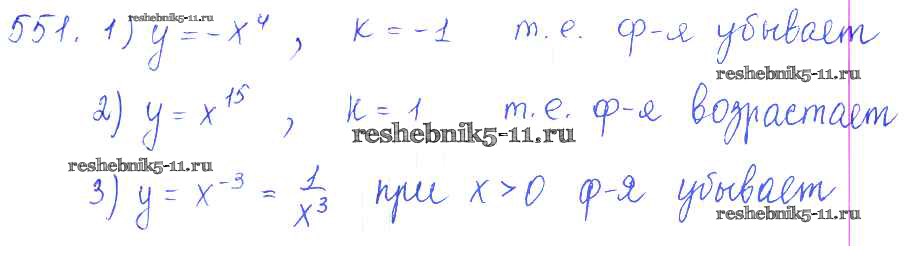 reshebnik5-11.ru
551. 1) y = -x⁴, к = -1 т.е. ф-я убывает
reshebnik5-11.ru
2) y = x¹⁵, к = 1 т.е. ф-я возрастает
reshebnik5-11.ru
reshebnik5-11.ru
3) y = x⁻³ = 1/x³ при x > 0 ф-я убывает
reshebnik5-11.ru